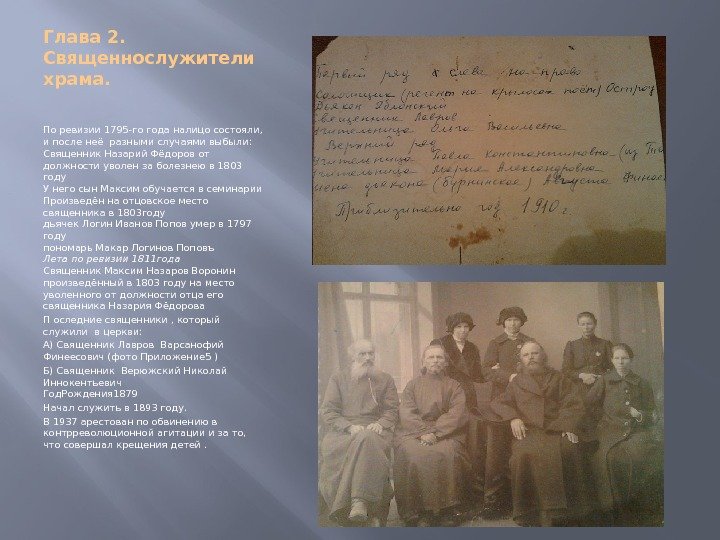 Глава 2.
Священнослужители
храма.
По ревизии 1795-го года налицо состояли,
и после неё  разными случаями выбыли:
Священник Назарий Фёдоров от
должности уволен за болезнею в 1803
году
У него сын Максим обучается в семинарии
Произведён на отцовское место
священника в 1803году
дьячек Логин Иванов Попов умер в 1797
году
пономарь Макар Логинов Поповъ
Лета по ревизии 1811года
Священник Максим Назаров Воронин
произведённый в 1803 году на место
уволенного от должности отца его
священника Назария Фёдорова
П оследние священники , который
служили  в церкви:
А) Священник Лавров  Варсанофий
Финеесович (фото Приложение5 )
Б) Священник  Верюжский Николай
Иннокентьевич
Год.Рождения1879
Начал служить в 1893 году.
В 1937 арестован по обвинению в
контрреволюционной агитации и за то,
что совершал крещения детей .
Первый ряд с слева на право
(регент на крылосах поёт)
Дьякон Яблонский
Священник Лавров
учительница Ольга Васильевна
Верхний ряд
учительница Павла Константиновна (из
учительница Мария Александровна
жена дьякона Августа
Приблизительно год 1910 г.